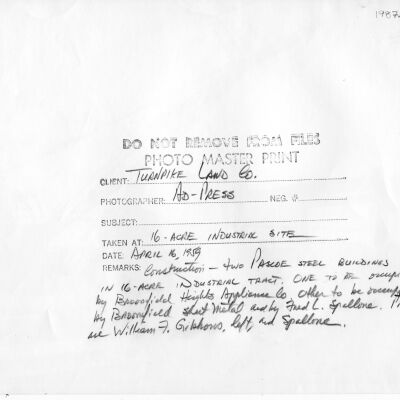 1987
DO NOT REMOVE FROM FILES
PHOTO MASTER PRINT
CLIENT: TURNPIKE LAND CO.
PHOTOGRAPHER: AD-PRESS NEG. #
SUBJECT:
TAKEN AT: 16-ACRE INDUSTRIAL SITE
DATE: APRIL 16, 1959
REMARKS: Construction - two PASCOE STEEL BUILDINGS
IN 16-ACRE INDUSTRIAL TRACT. ONE TO BE
by Broomfield Heights Appliance Co. other to be
by Broomfield Sheet Metal and by Fred L. Spallone.
are William F. Gibbons, left and Spallone.